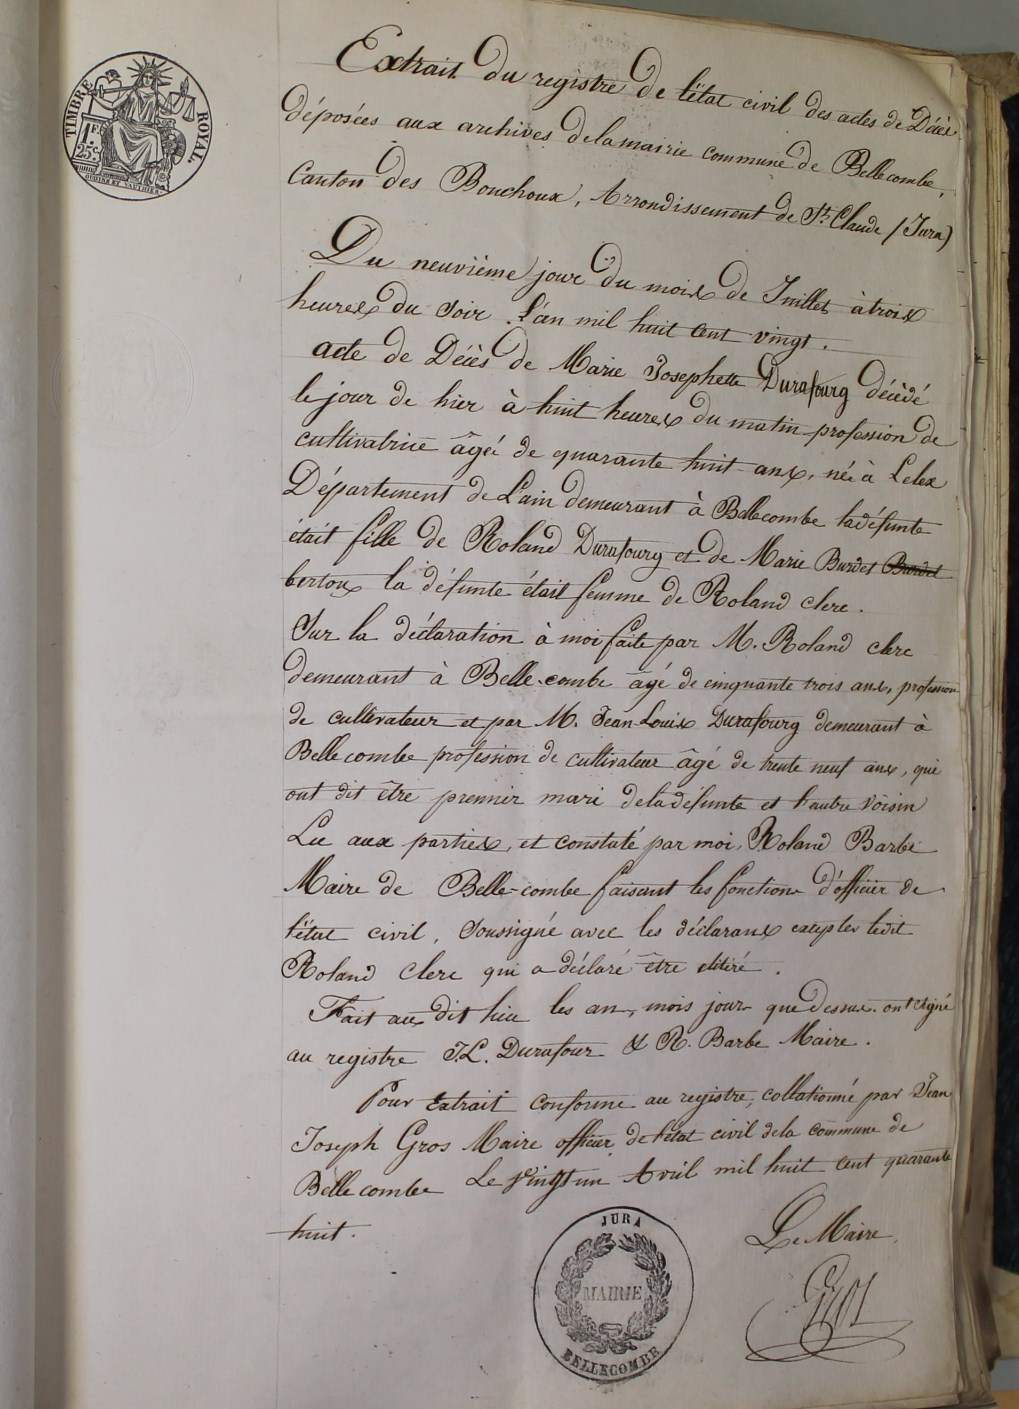 TIMBRE ROYAL
1F.
25c.
Extrait du registre de l'état civil des actes de Décès
déposées aux archives de la mairie commune de Bellecombe,
Canton des Bouchoux, Arrondissement de St. Claude (Jura)
Du neuvième jour du mois de Juillet à trois
heures du soir l'an mil huit cent vingt.
acte de Décès de Marie Josephette Durafourg décèdé
le jour de hier à huit heures du matin profession de
cultivatrice âgé de quarante huit ans, né à Lelex
Département de L'ain demeurant à Bellecombe la défunte
était fille de Roland Durafourg et de Marie Burdet Burdet
bertoux la défunte était femme de Roland clerc.
Sur la déclaration à moi faite par M. Roland clerc
demeurant à Belle-combe âgé de cinquante trois ans, profession
de cultivateur et par M. Jean Louis Durafourg demeurant à
Bellecombe profession de cultivateur âgé de trente neuf ans, qui
ont dit être premier mari de la défunte et l'autre voisin
Lu aux parties, et constaté par moi, Roland Barbe
Maire de Belle-combe faisant les fonctions d'officier de
l'état civil, soussigné avec les déclarans excepter ledit
Roland clerc qui a déclaré être
Fait au dit lieu les an, mois jour que dessus ont signé
au registre J.L. Durafour & R. Barbe Maire.
Pour Extrait conforme au registre, collationné par Jean
Joseph Gros Maire officier de l'état civil de la commune de
Bellecombe Le vingt un Avril mil huit cent quarante
huit.
Le Maire
Gros
JURA
MAIRIE
BELLECOMBE